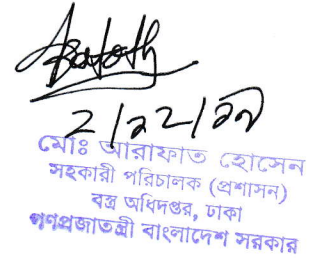 মোঃ আরাফাত হোসেন
সহকারী পরিচালক (প্রশাসন)
বস্ত্র অধিদপ্তর, ঢাকা
গণপ্রজাতন্ত্রী বাংলাদেশ সরকার